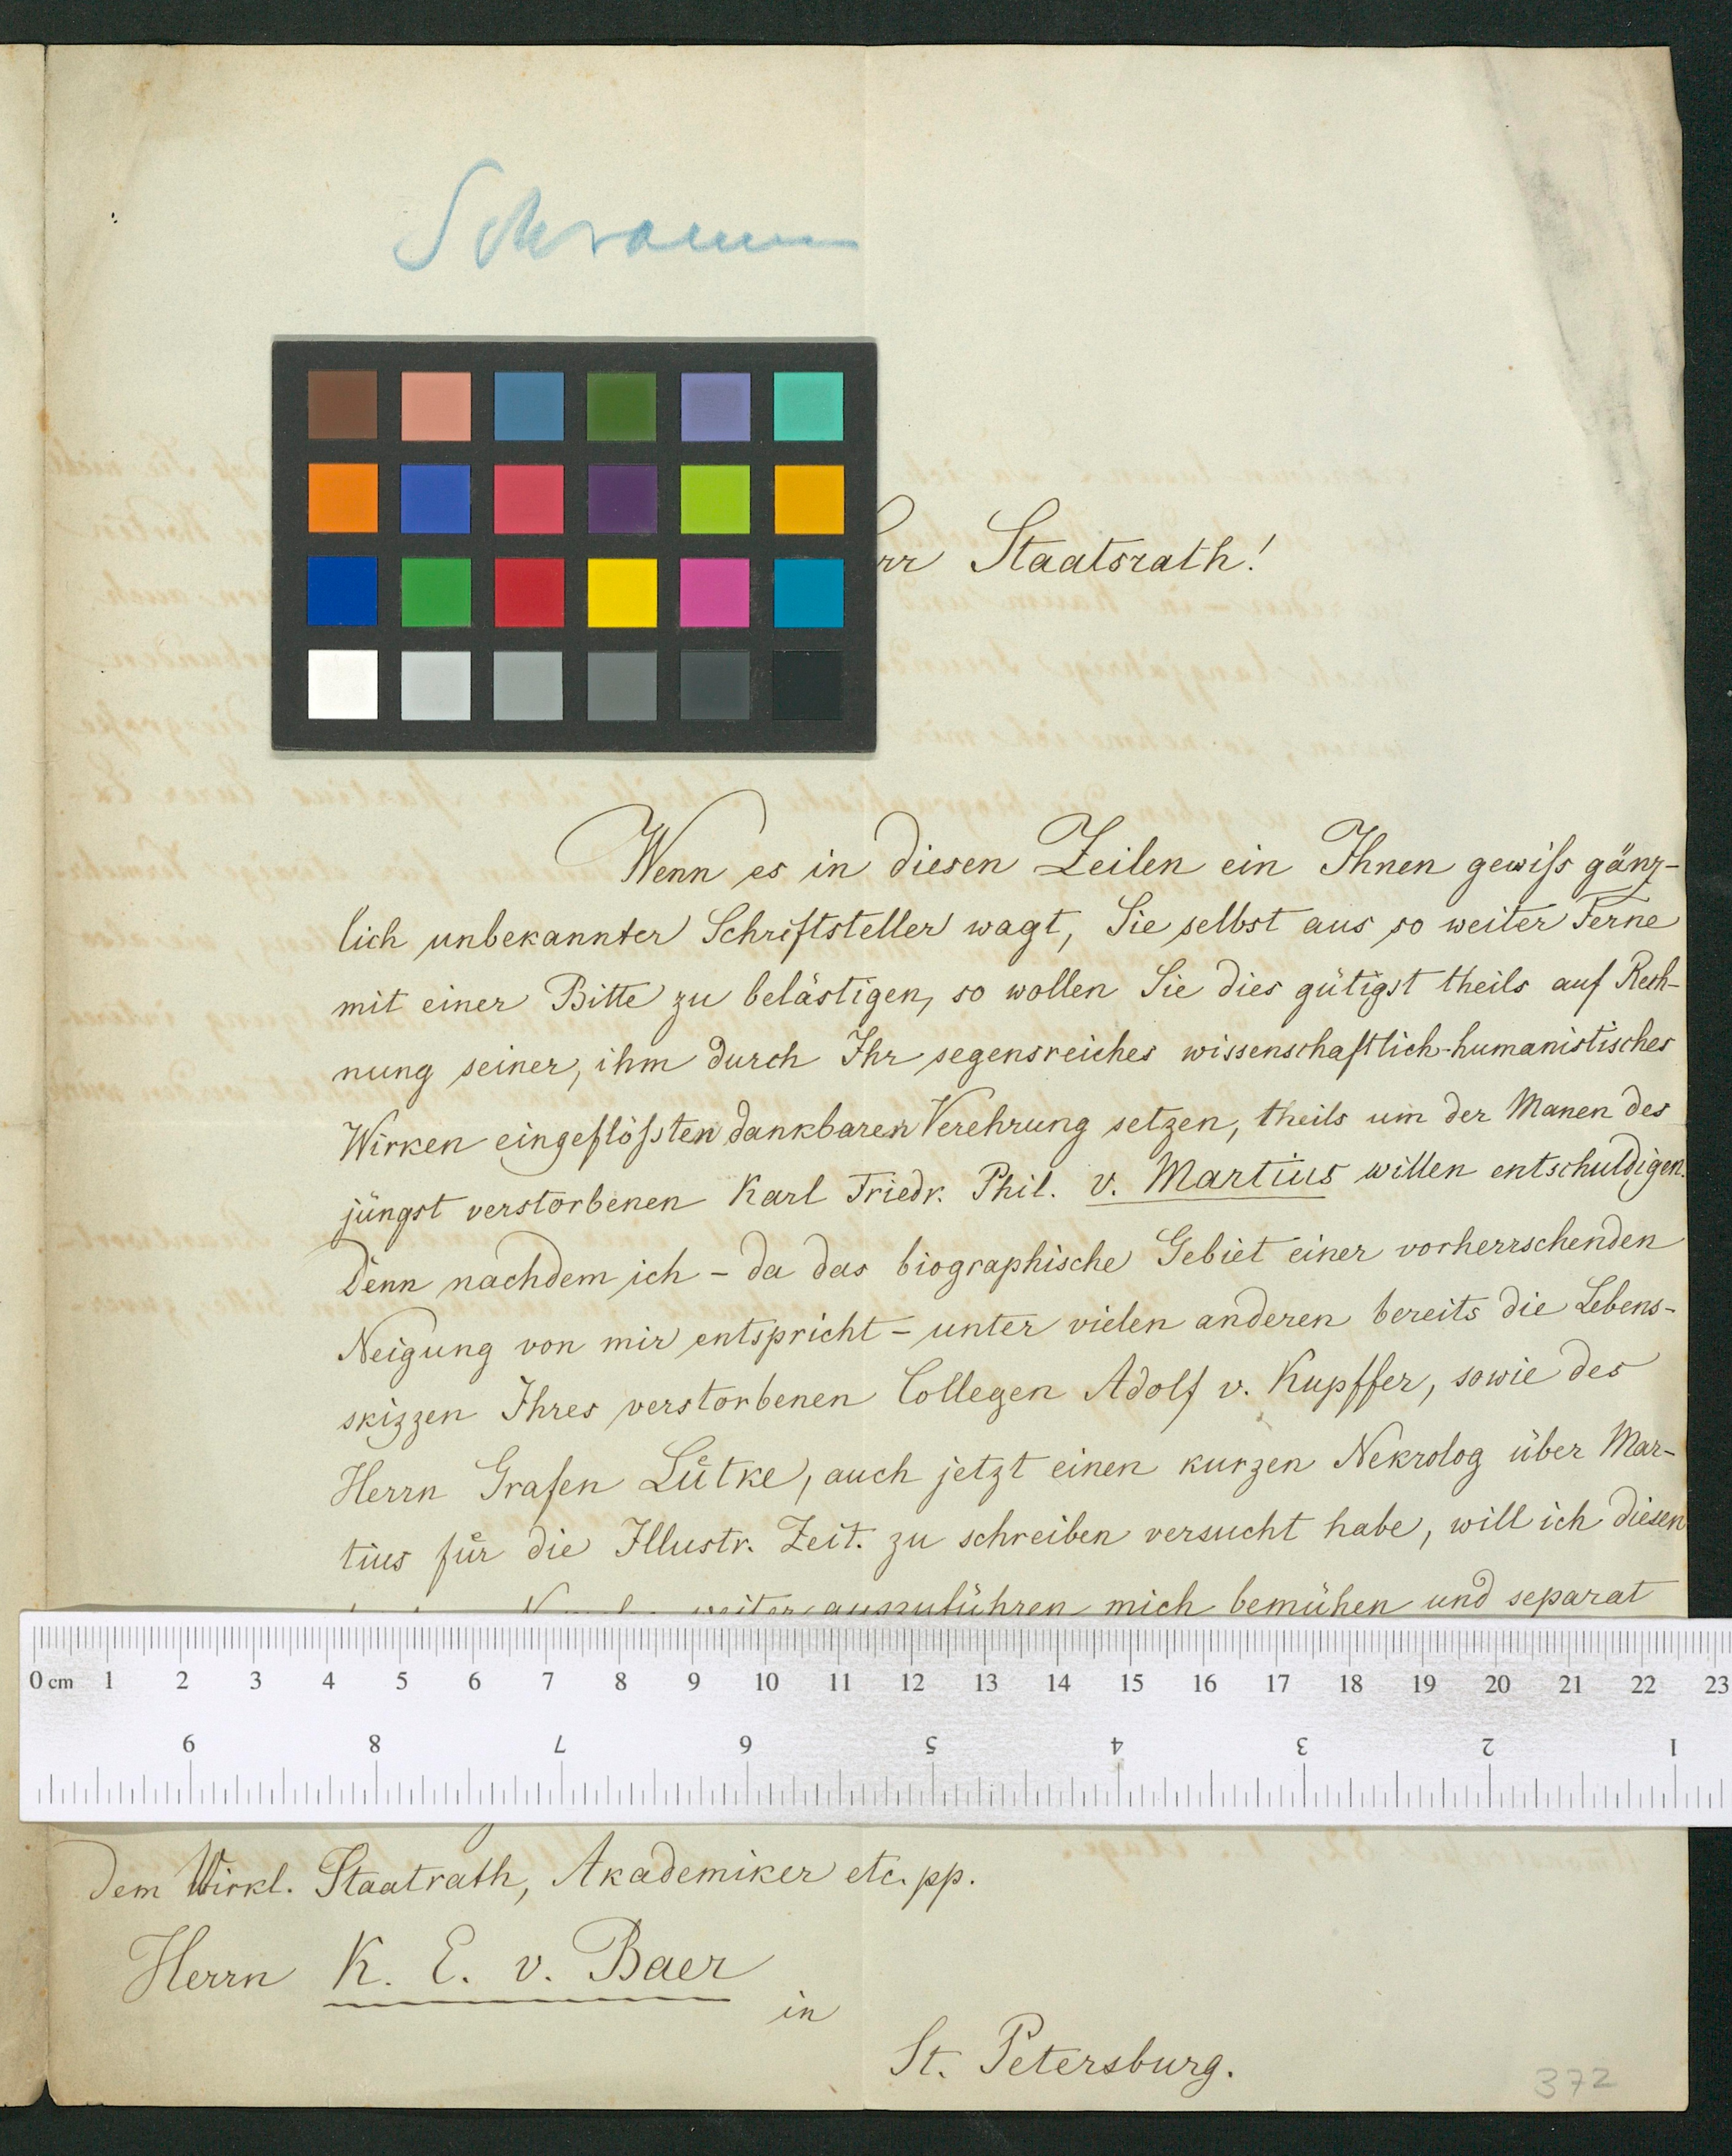 Schramm
rr Staatsrath!
Wenn es in diesen Zeilen ein Ihnen gewiſs gänz-
lich unbekannter Schriftsteller wagt, Sie selbst aus so weiter Ferne
mit einer Bitte zu belästigen, so wollen Sie dies gütigst theils auf Rech-
nung seiner, ihm durch Ihr segensreiches wissenschaftlich-humanistisches
Wirken eingeflöſsten dankbaren Verehrung setzen, theils um der Manen des
jüngst verstorbenen Karl Friedr. Phil. v. Martius willen entschuldigen.
Denn nachdem ich – da das biographische Gebiet einer vorherrschenden
Neigung von mir entspricht – unter vielen anderen bereits die Lebens-
skizzen Ihres verstorbenen Collegen Adolf v. Kupffer, sowie des
Herrn Grafen Lütke, auch jetzt einen kurzen Nekrolog über Mar-
tius für die Illustr. Zeit. zu schreiben versucht habe, will ich diesen
weiter auszuführen mich bemühen und separat
0 cm 1 2 3 4 5 6 7 8 9 10 11 12 13 14 15 16 17 18 19 20 21 22 23
9 8 7 6 5 4 3 2 1
Dem Wirkl. Staatrath, Akademiker etc. pp.
Herrn K. E. v. Baer
in
St. Petersburg.
372